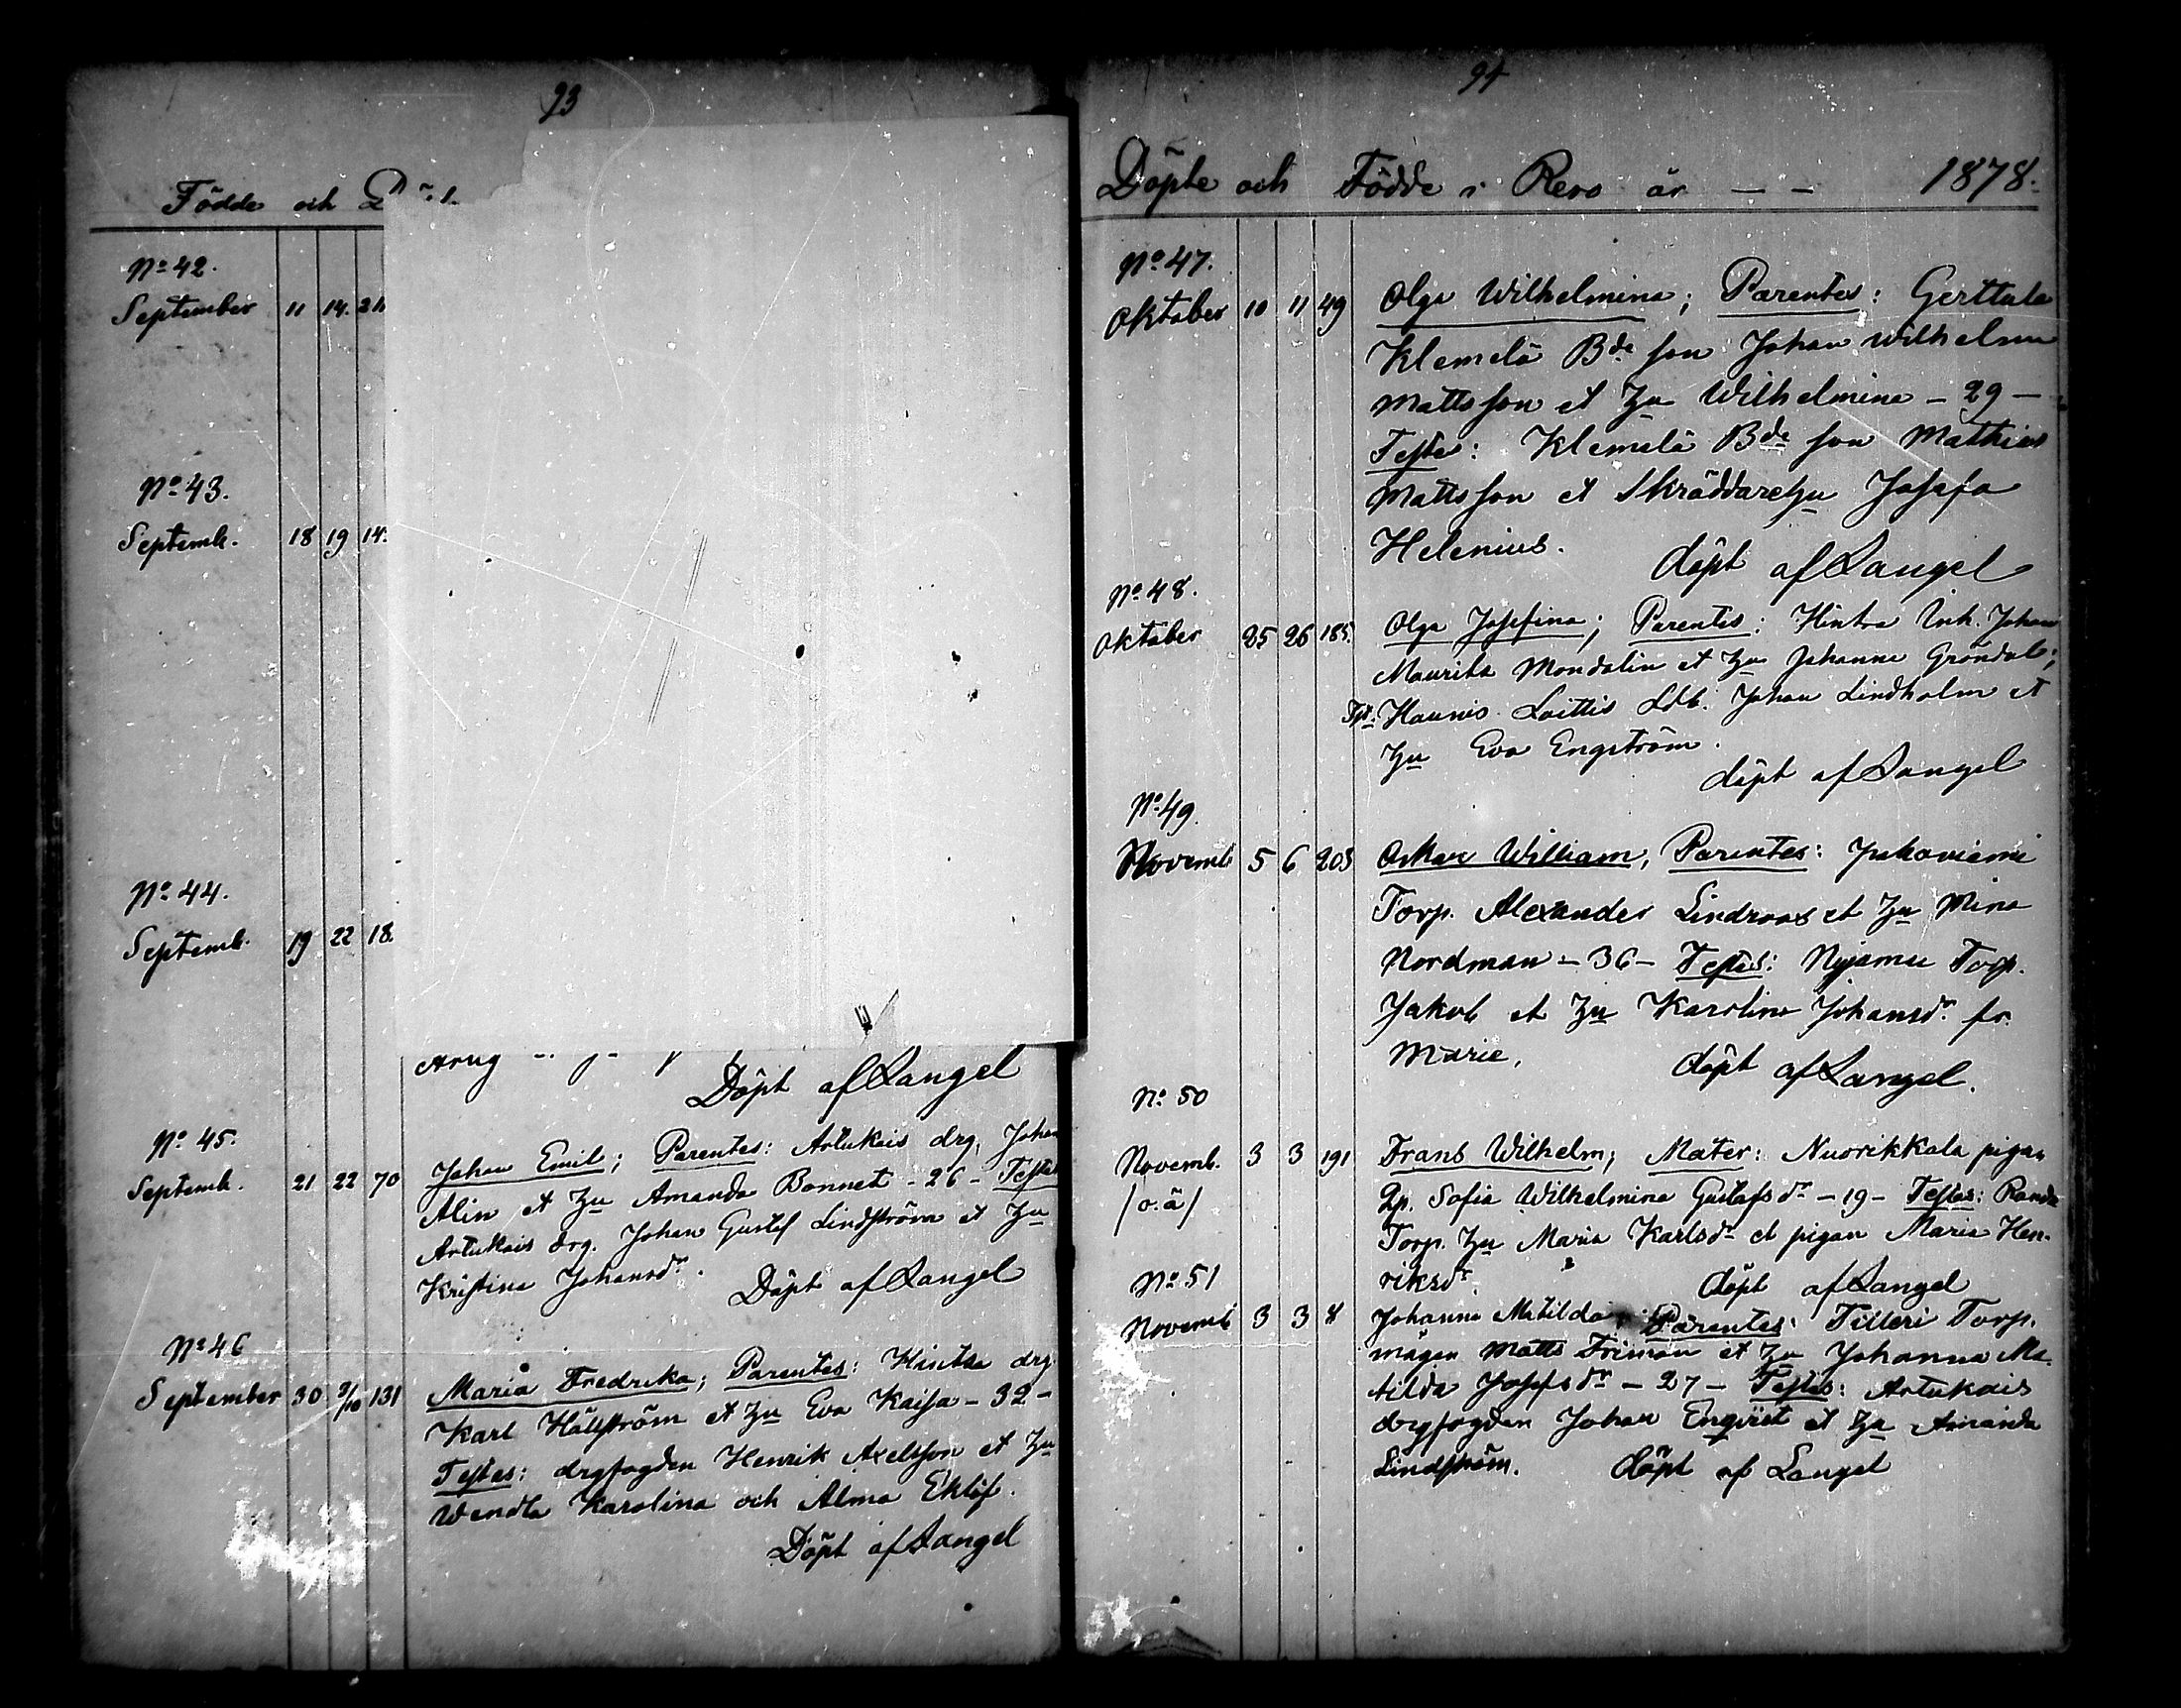 93
Födde och
No 42.
September 11 14.
No 43.
Septemb. 18 19 14.
No 44.
Septemb. 19 22 18.
Döpt af Langel
No 45.
Septemb. 21 22 70 Johan Emil; Parentes: Artukais drg. Johan
Alin et hu Amanda Bonnet - 26 - Testes
Artukais drg. Johan Gustaf Lindström et hu
Kristina Johansdr. Döpt af Langel
No 46
September 30 3/10 131 Maria Fredrika; Parentes: Kintsa drg
Karl Hällström et hu Eva Kaisa - 32 -
Testes: drgfogden Henrik Axelsson et hu
Wendla Karolina och Alma Eklöf.
Döpt af Langel
94
Döpte och Födde i Reso år - - 1878.
No 47.
Oktober 10 11 49 Olga Wilhelmina; Parentes: Gerttula
Klemelä Bde son Johan Wilhelm
Mattsson et hu Wilhelmina - 29 -
Testes: Klemelä Bde son Mathias
Mattsson et Skräddarehu Josefa
Helenius. döpt af Langel
No 48.
Oktober 25 26 185. Olga Josefina; Parentes: Hintsa Inh. Johan
Maurits Mondolin et hu Johanna Gröndal;
Tst: Haunis Loittis Ldb. Johan Lindholm et
hu Eva Engström.
döpt af Langel
No 49.
Novemb 5 6 203 Oskar William, Parentes:
Torp. Alexander Lindroos et hu Mina
Nordman - 36 - Testes: Nyjamu Torp.
Jakob et hu Karolina Johansdr. fr.
Marie, döpt af Langel.
No 50
Novemb. 3 3 191 Frans Wilhelm; Mater: Nuorikkala pigan
/o.ä/ Qp. Sofia Wilhelmina Gustafsdr - 19 - Testes: Randa
Torp. hu Maria Karlsdr et pigan Maria Hen-
riksdr. döpt af Langel
No 51
Novemb 3 3 8 Johanna Matilda; Parentes: Tilleri Torp.
mågen Matts Friman et hu Johanna Ma-
tilda Josefsdr - 27 - Testes: Artukais
drgfogden Johan Enqvist et hu Amanda
Lindström. döpt af Langel